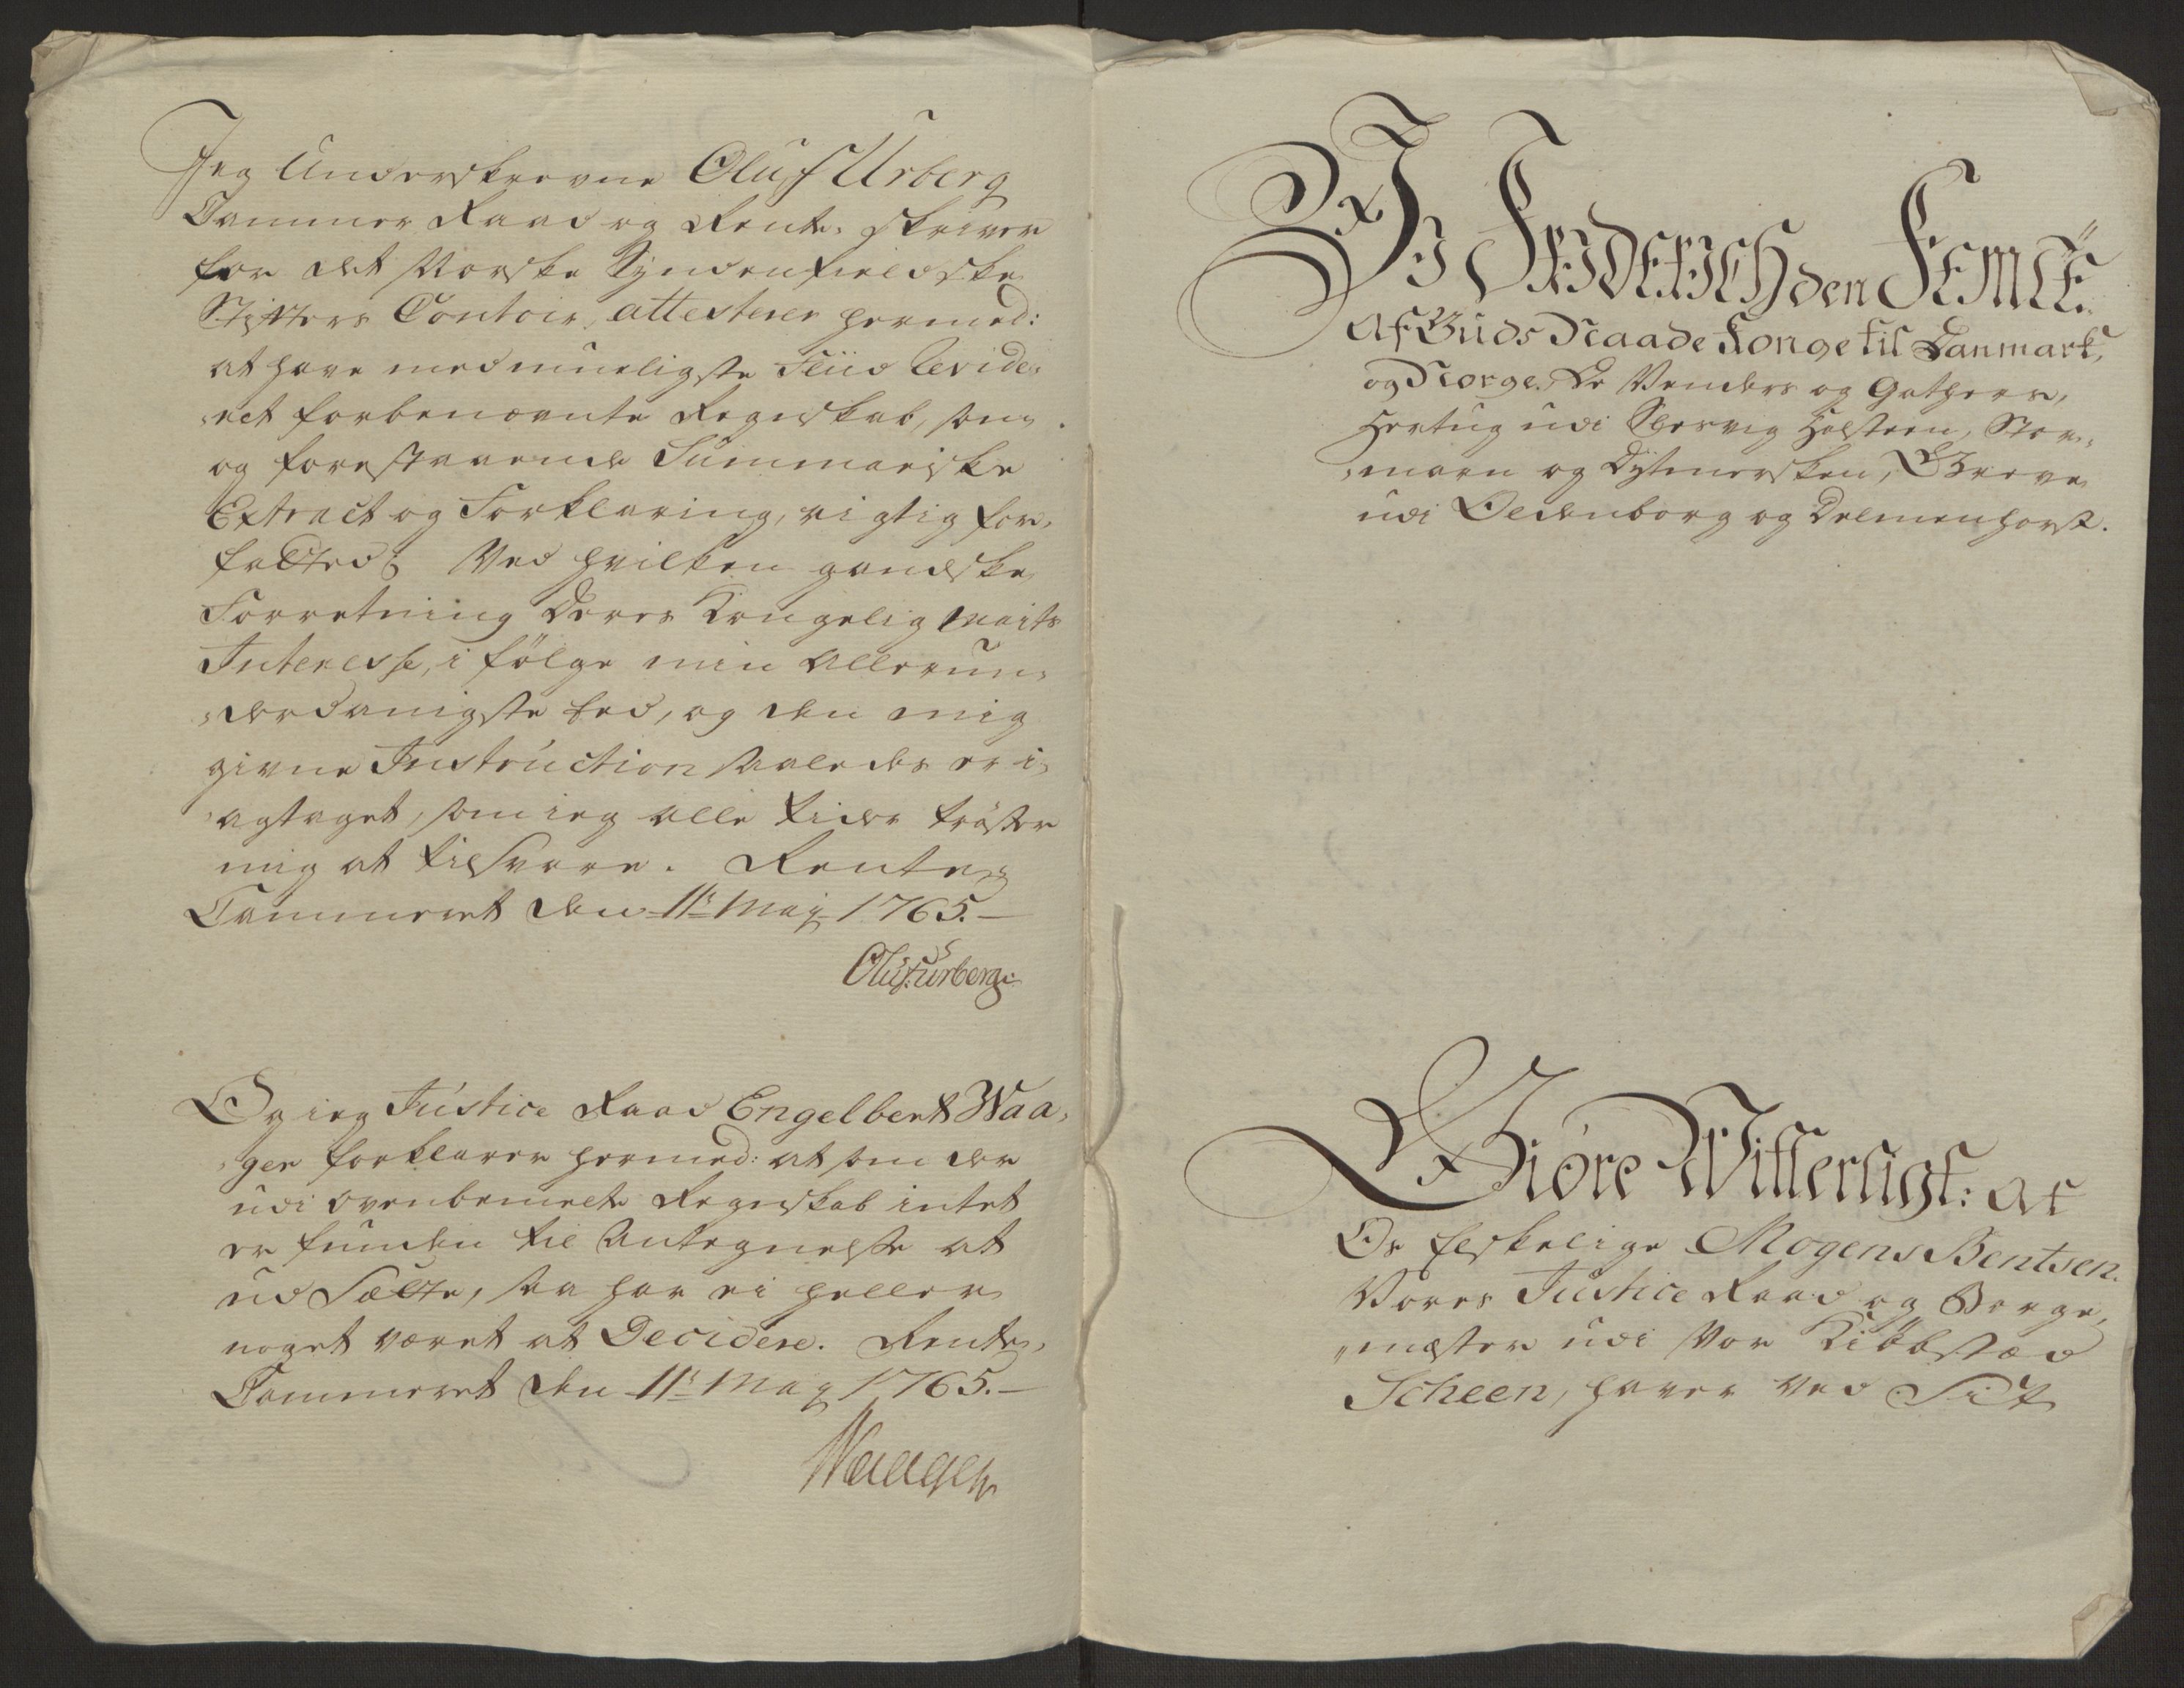 Jeg Underskrevne Oluf Urberg
Cammer Raad og Rente¸ skriver
for det Norske Syndenfieldske
Stifters Contoir, attesterer hermed:
at have med mueligste Fliid Revide¸
¸ret forbenævnte Regnskab, som
og forestaaende Summariske
Extract og Forklaring, rigtig for¸
fatted; Ved hvilken gandske
Forretning Deres Kongelig Maits
Interesse, i følge min Allerun¸
¸derdanigste Eed, og den mig
givne Instruction saaledes er i¸
¸agtaget, som ieg alle tider trøster
mig at tilsvare. Rente¸
Cammeret den 11te Maij 1765.
Oluf Urberg
Og ieg Justice Raad Engelbert Waa¸
¸ger forklarer hermed: at som der
udi ovenbemelte Regnskab intet
er funden til Antegnelse at
ud Sætte, saa har ei heller
noget været at Decidere. Rente¸
Cammeret den 11te Maij 1765.
Waager
Wi FRIDERICH den FEMTE
Af Guds Naade Konge til Danmark,
og Norge, De Venders og Gothers,
Hertug udi Slesvig Holsteen, Stor¸
¸marn og Dytmersken, Greve
udi Oldenborg og Delmenhorst.
Giöre Witterligt: at
Os Elskelige Mogens Bentsen.
Vores Justice Raad og Borge¸
¸mester udi Vor Kiöbstæd
Scheen, haver ved Sit